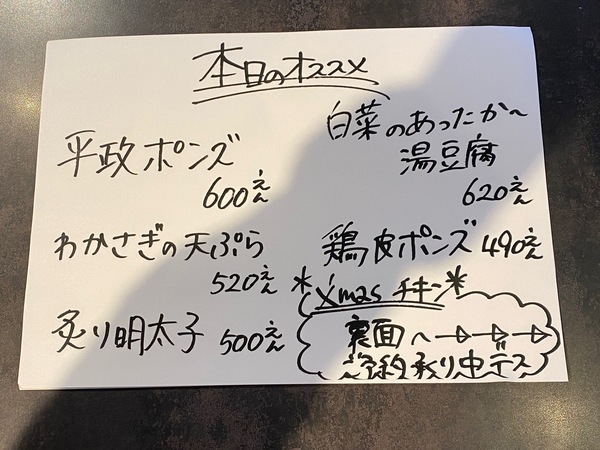 本日のオススメ
平政ポンズ
600えん
わかさぎの天ぷら
520えん
炙り明太子 500えん
白菜のあったか〜
湯豆腐
620えん
鶏皮ポンズ 490えん
*Xmasチキン*
裏面へ→→→
ご予約承り中デス